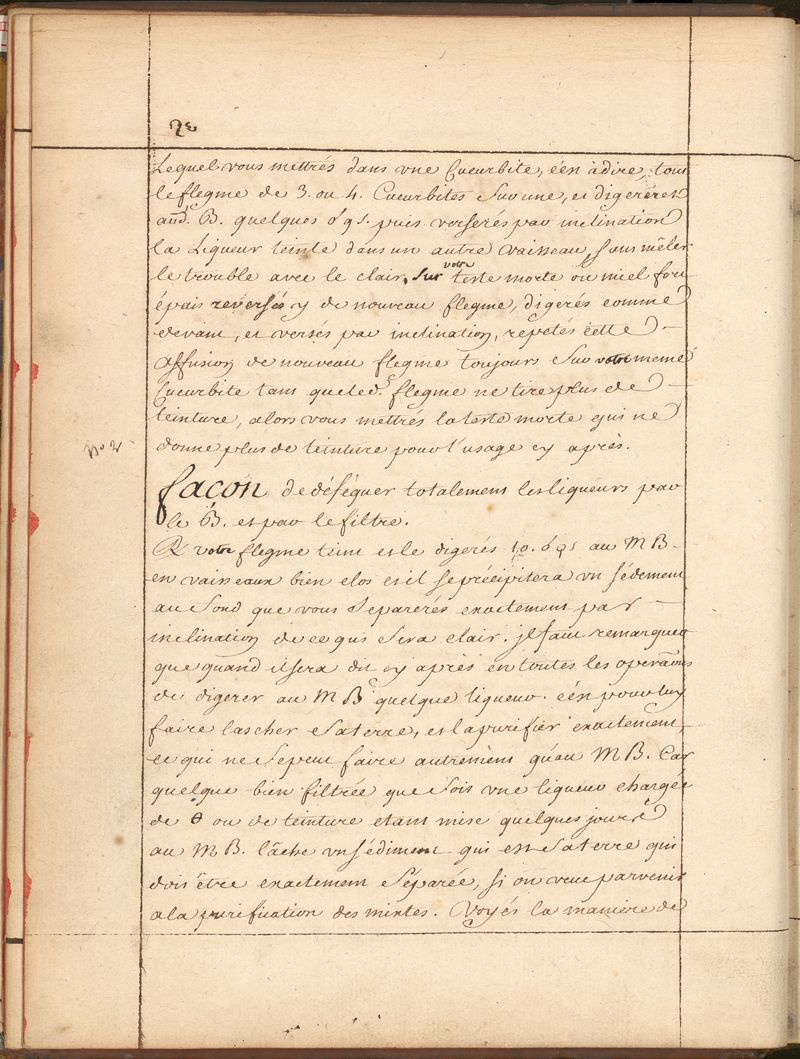 Lequel vous mettrés dans vne Cucurbite, cén àdire, tout
le flegme de 3. ou 4. Cucurbites sur une, et digererés
aud. B. quelques puis verserés par inclination
la Liqueur teinte dans un autre vaisseau, sans mêler
le trouble avec le clair, sur votre teste morte ou miel fort
épais reversés y de nouveau flegme, digerés comme
devant, et versés par inclination, repetés cette
affusion de nouveau flegme toujours sur votre meme
Cucurbite tant que led. flegme ne tire plus de
teinture, alors vous mettrés la teste morte qui ne
donne plus de teinture pour l'usage cy après.
No 2
façon de déféquer totalement les liqueurs par
le B. et par le filtre.
votre flegme teint et le digerés 10. au MB
en vaisseaux bien clos et il se précipitera vn sédement
au fond que vous separerés exactement par
inclination de ce qui sera clair. jl faut remarquer
que quand il sera dit cy après en toutes les operãons
de digerer au MB quelque liqueur. cén pour luy
faire lascher sa terre, et la purifier exactement,
ce qui ne se peut faire autrement qu'au MB. Car
quelque bien filtrée que soit vne liqueur chargée
de θ ou de teinture etant mise quelques jours
au MB. lâche vn sédiment qui est sa terre qui
doit être exactement séparée, si on veut parvenir
a la purification des mixtes. Voyés la maniere de